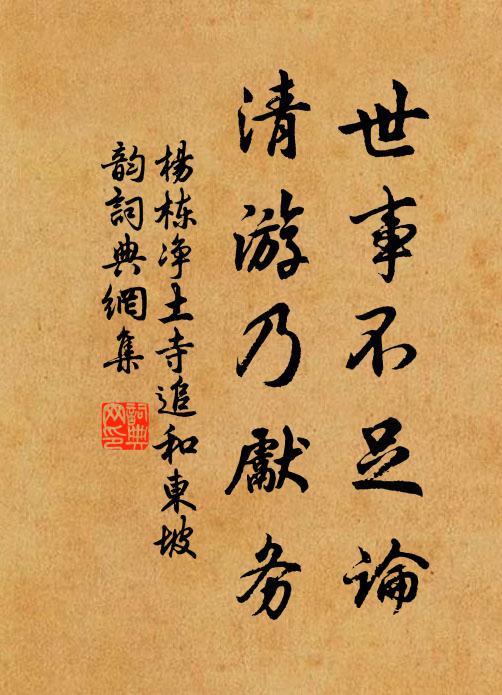 世事不足論
清游乃獻务
楊栋净土寺追和東坡
韵詞典網集
詞典网印